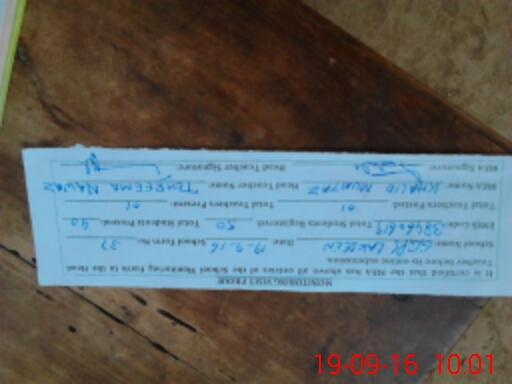 MONITORING VISIT PROOF
It is certified that the MEA has shown all entries of the School Monitoring Form to the Head
Teacher before its online submission.
School Name: GGPS Date: 19-9-16 School Form No: 37
EMIS Code: Total Students Registered: 50 Total Students Present: 43
Total Teachers Posted: 01 Total Teachers Present: 01
MEA Name: KHALID MUMTAZ Head Teacher Name: TEHREEMA NAWAZ
MEA Signature: Head Teacher Signature:
19-09-16 10:01